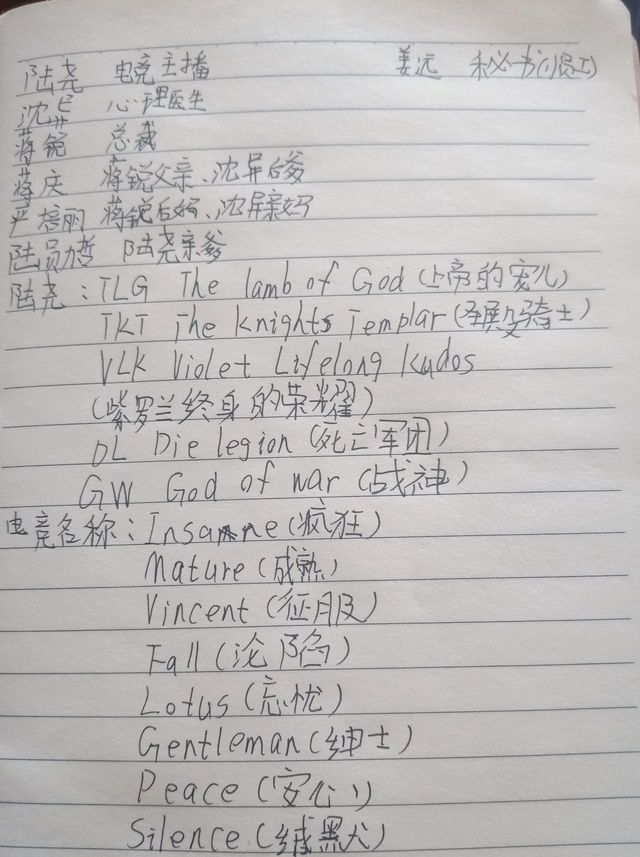 陆尧 电竞主播 姜远 秘书(员工)
沈异 心理医生
蒋锐 总裁
蒋庆 蒋锐父亲、沈异后爹
严培丽 蒋锐后妈、沈异亲妈
陆员哲 陆尧亲爹
陆尧：TLG The lamb of God (上帝的宠儿)
TKT The Knights Templar (圣殿骑士)
VLK Violet Lifelong Kudos
(紫罗兰终身的荣耀)
DL Die legion (死亡军团)
GW God of war (战神)
电竞名称：Insane (疯狂)
Mature (成熟)
Vincent (征服)
Fall (沦陷)
Lotus (忘忧)
Gentleman (绅士)
Peace (安心)
Silence (缄默)